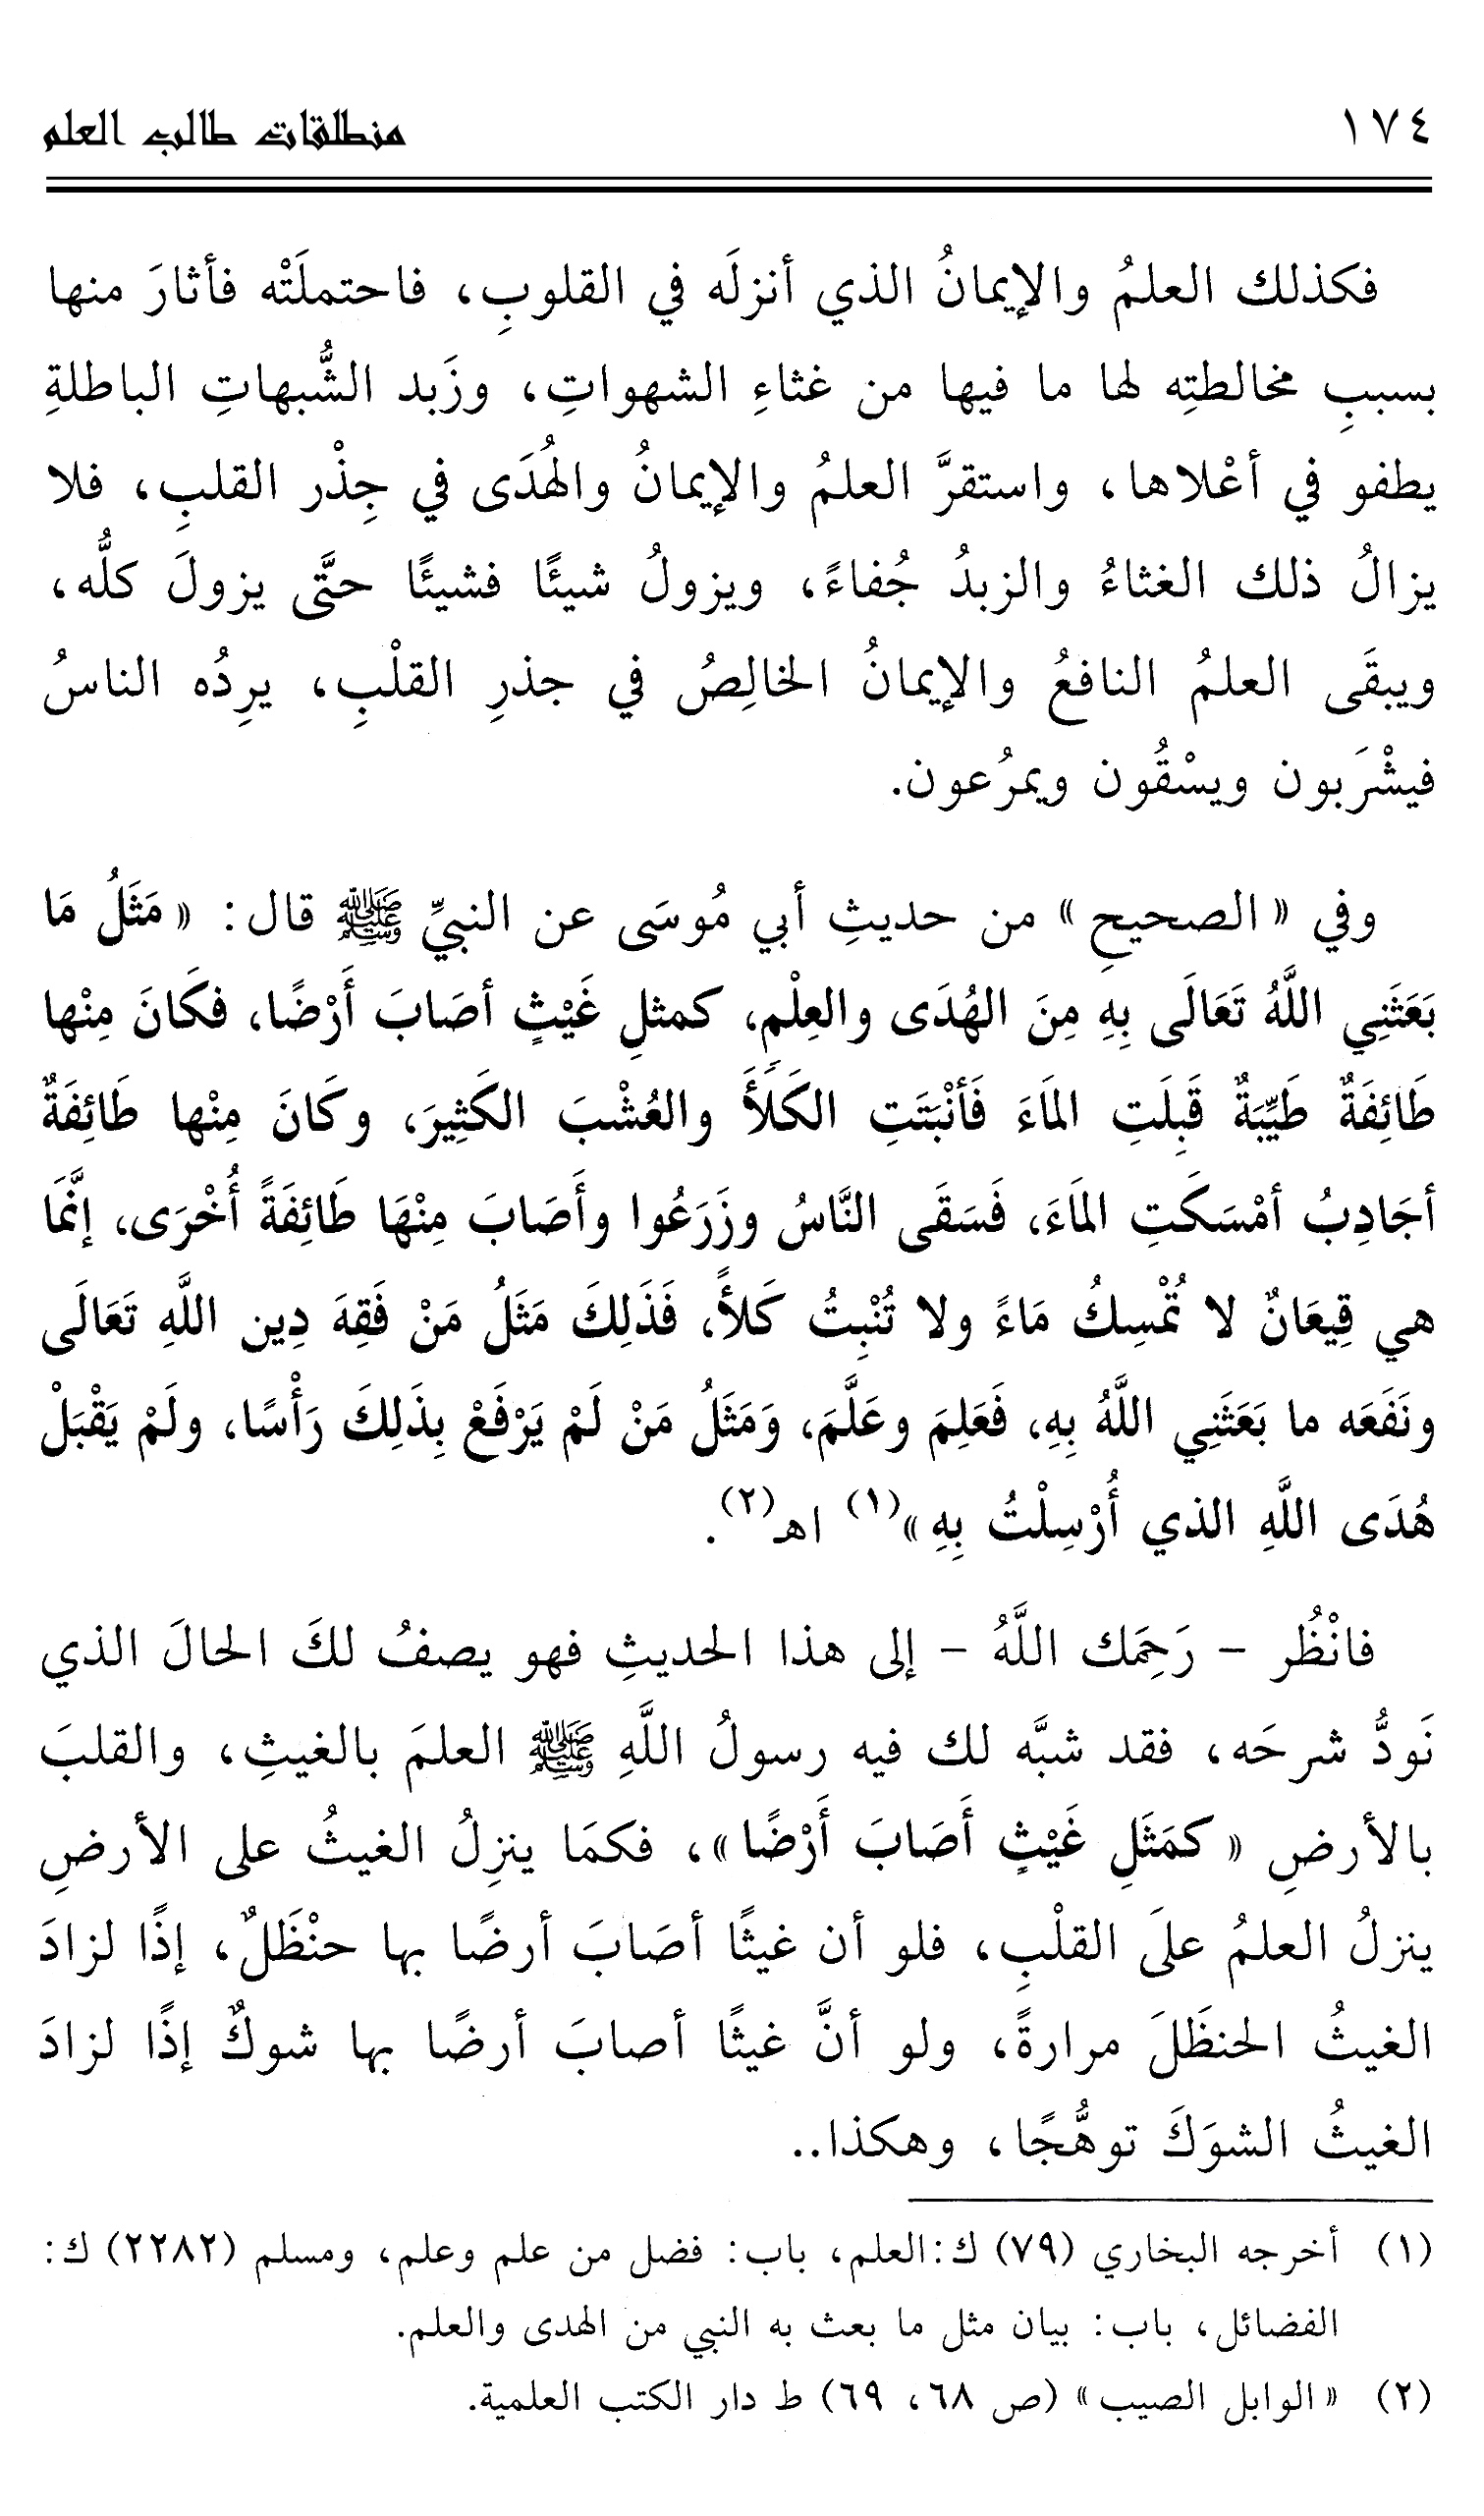 ١٧٤ منطلقات طالب العلم
فكذلك العلمُ والإيمانُ الذي أنزلَه في القلوبِ، فاحتملَتْه فأثارَ منها
بسببِ مخالطتِه لها ما فيها من غثاءِ الشهواتِ، وزَبد الشُّبهاتِ الباطلةِ
يطفو في أعْلاها، واستقرَّ العلمُ والإيمانُ والهُدَى في جِذْر القلبِ، فلا
يزالُ ذلك الغثاءُ والزبدُ جُفاءً، ويزولُ شيئًا فشيئًا حتَّى يزولَ كلُّه،
ويبقَى العلمُ النافعُ والإيمانُ الخالِصُ في جذرِ القلْبِ، يرِدُه الناسُ
فيشْرَبون ويسْقُون ويمرُعون.
وفي «الصحيحِ» من حديثِ أبي مُوسَى عن النبيِّ ﷺ قال: «مَثَلُ مَا
بَعَثَنِي اللَّهُ تَعَالَى بِهِ مِنَ الهُدَى والعِلْمِ، كمثلِ غَيْثٍ أصَابَ أَرْضًا، فكَانَ مِنْها
طَائِفَةٌ طَيِّبَةٌ قَبِلَتِ المَاءَ فَأنْبَتَتِ الكَلَأَ والعُشْبَ الكَثِيرَ، وكَانَ مِنْها طَائِفَةٌ
أجَادِبُ أمْسَكَتِ المَاءَ، فَسَقَى النَّاسُ وزَرَعُوا وأَصَابَ مِنْهَا طَائِفَةً أُخْرَى، إنَّمَا
هي قِيعَانٌ لا تُمْسِكُ مَاءً ولا تُنْبِتُ كَلأً، فَذَلِكَ مَثَلُ مَنْ فَقِهَ دِين اللَّهِ تَعَالَى
ونَفَعَه ما بَعَثَنِي اللَّهُ بِهِ، فَعَلِمَ وعَلَّمَ، وَمَثَلُ مَنْ لَمْ يَرْفَعْ بِذَلِكَ رَأْسًا، ولَمْ يَقْبَلْ
هُدَى اللَّهِ الذي أُرْسِلْتُ بِهِ»(١) اهـ(٢).
فانْظُر - رَحِمَك اللَّهُ - إلى هذا الحديثِ فهو يصفُ لكَ الحالَ الذي
نَودُّ شرحَه، فقد شبَّه لك فيه رسولُ اللَّهِ ﷺ العلمَ بالغيثِ، والقلبَ
بالأرضِ «كمَثَلِ غَيْثٍ أَصَابَ أَرْضًا»، فكمَا ينزِلُ الغيثُ على الأرضِ
ينزلُ العلمُ علَى القلْبِ، فلو أن غيثًا أصَابَ أرضًا بها حنْظَلٌ، إذًا لزادَ
الغيثُ الحنظَلَ مرارةً، ولو أنَّ غيثًا أصابَ أرضًا بها شوكٌ إذًا لزادَ
الغيثُ الشوَكَ توهُّجًا، وهكذا..
(١) أخرجه البخاري (٧٩) ك:العلم، باب: فضل من علم وعلم، ومسلم (٢٢٨٢) ك:
الفضائل، باب: بيان مثل ما بعث به النبي من الهدى والعلم.
(٢) «الوابل الصيب» (ص ٦٨، ٦٩) ط دار الكتب العلمية.